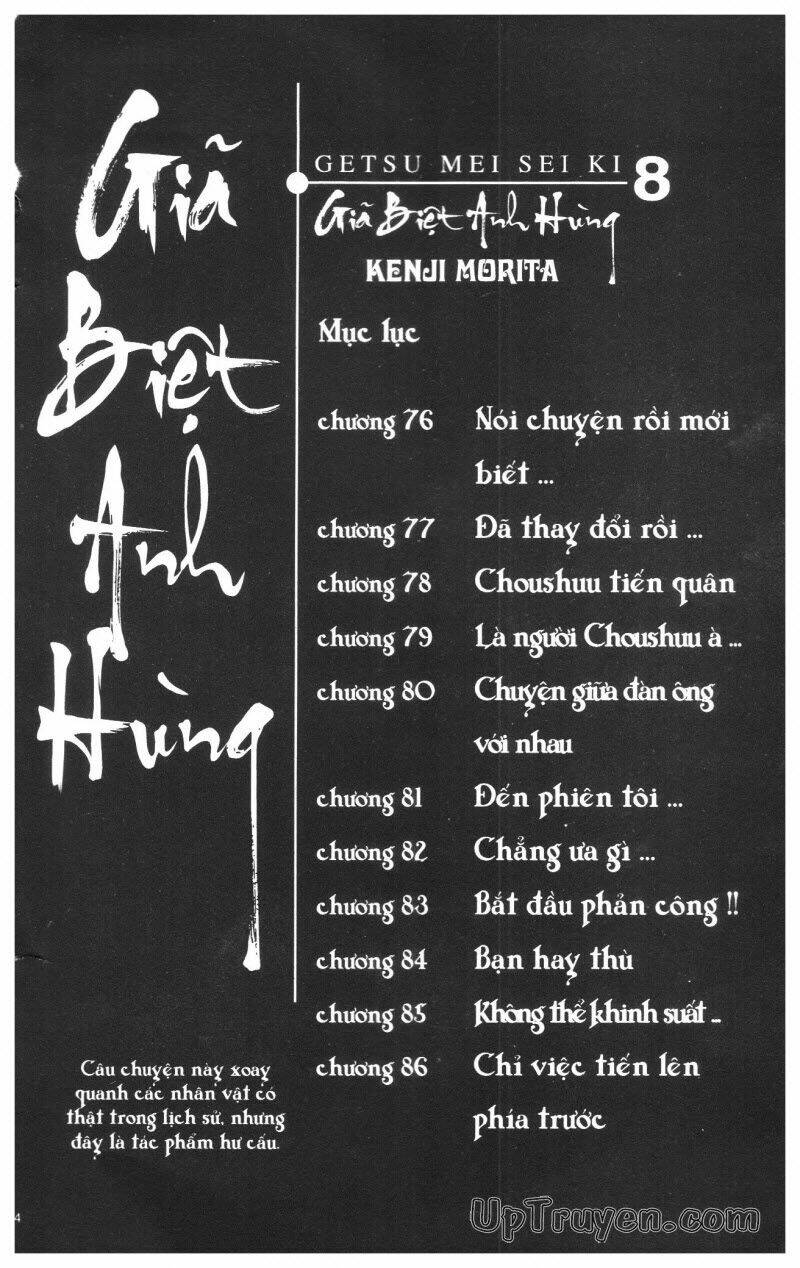 Giã
Biệt
Anh
Hùng
GETSU MEI SEI KI 8
Giã Biệt Anh Hùng
KENJI MORITA
Mục lục
chương 76 Nói chuyện rồi mới
biết ...
chương 77 Đã thay đổi rồi ...
chương 78 Choushuu tiến quân
chương 79 Là người Choushuu à ...
chương 80 Chuyện giữa đàn ông
với nhau
chương 81 Đến phiên tôi ...
chương 82 Chẳng ưa gì ...
chương 83 Bắt đầu phản công !!
chương 84 Bạn hay thù
chương 85 Không thể khinh suất ...
chương 86 Chỉ việc tiến lên
phía trước
Câu chuyện này xoay
quanh các nhân vật có
thật trong lịch sử, nhưng
đây là tác phẩm hư cấu.
4
UpTruyen.com